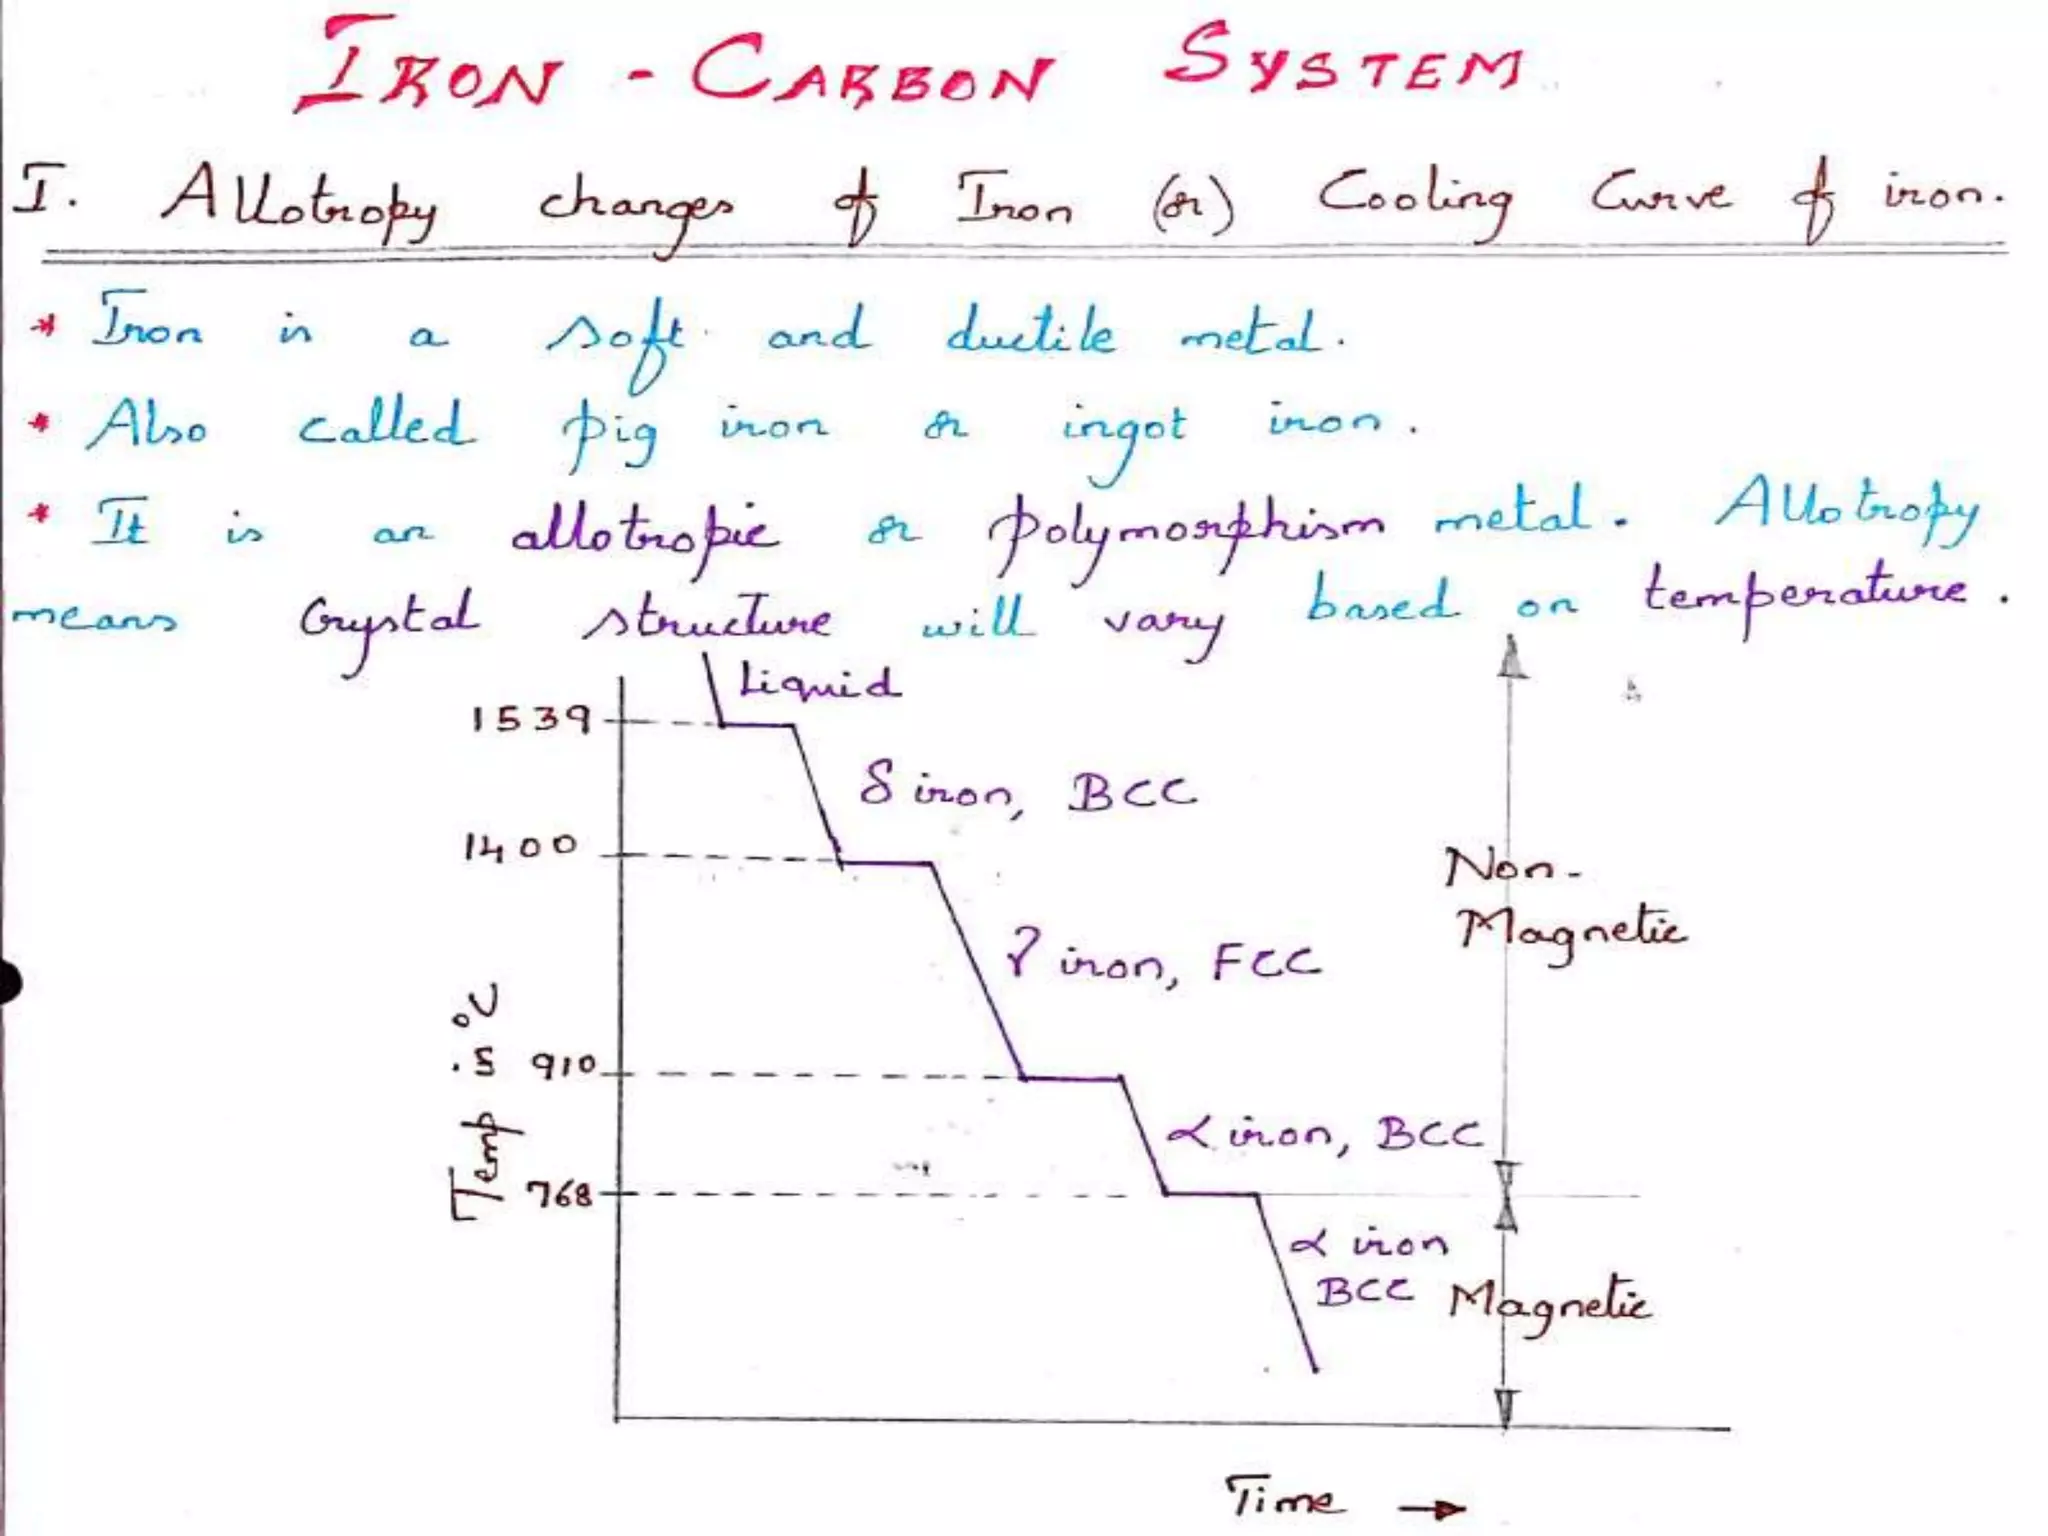 IRON - CARBON SYSTEM
I. Allotropy changes of Iron (or) Cooling Curve of iron.
* Iron is a soft and ductile metal.
* Also called pig iron or ingot iron.
* It is an allotropic or polymorphism metal. Allotropy
means Crystal structure will vary based on temperature.
Liquid
1539
δ iron, BCC
1400
Non-
Magnetic
γ iron, FCC
Temp in °C
910
α iron, BCC
768
α iron
BCC
Magnetic
Time →